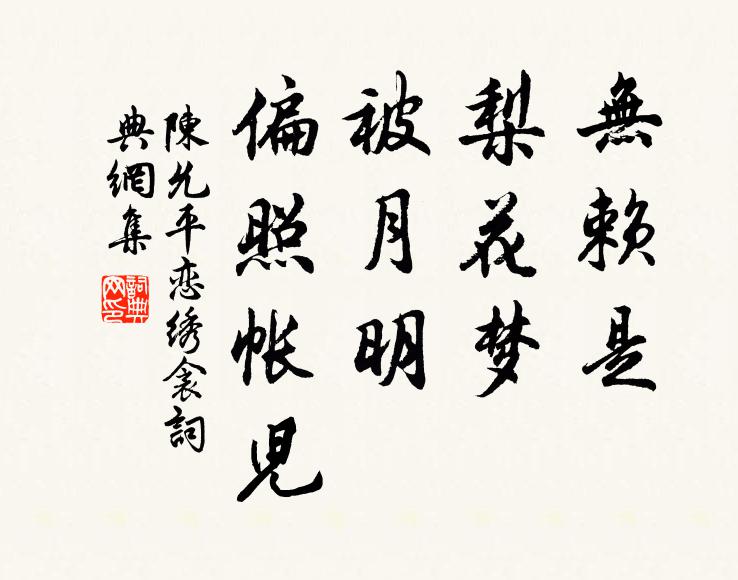 無賴是
梨花梦
被月明
偏照帐児
陳允平恋绣衾詞
典網集
詞典
网印